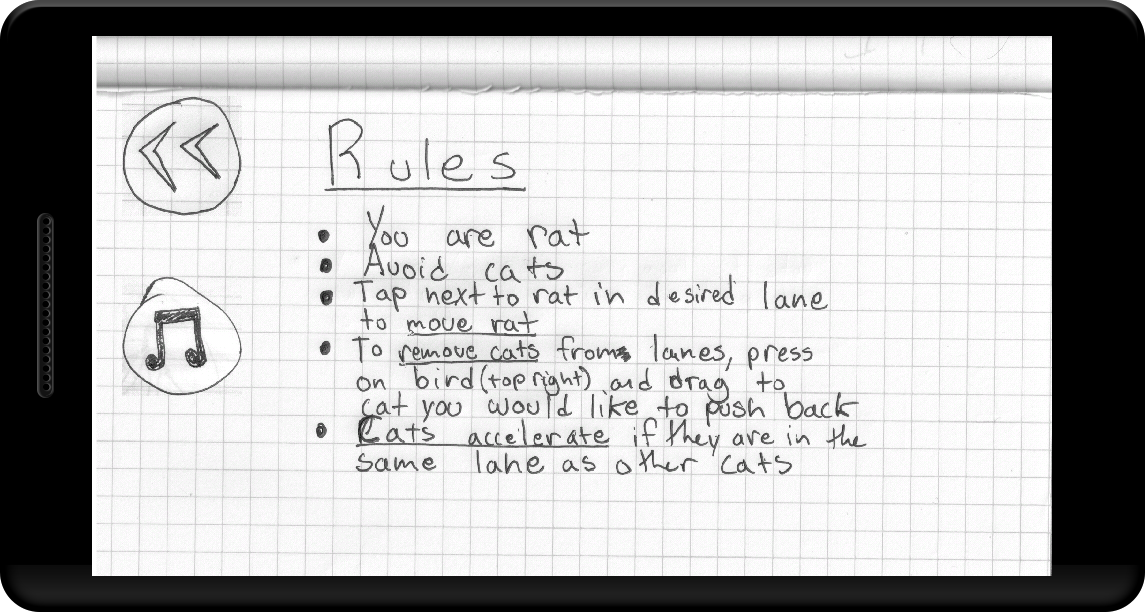 Rules
• You are rat
• Avoid cats
• Tap next to rat in desired lane
to move rat
• To remove cats from lanes, press
on bird (top right) and drag to
cat you would like to push back
• Cats accelerate if they are in the
same lane as other cats